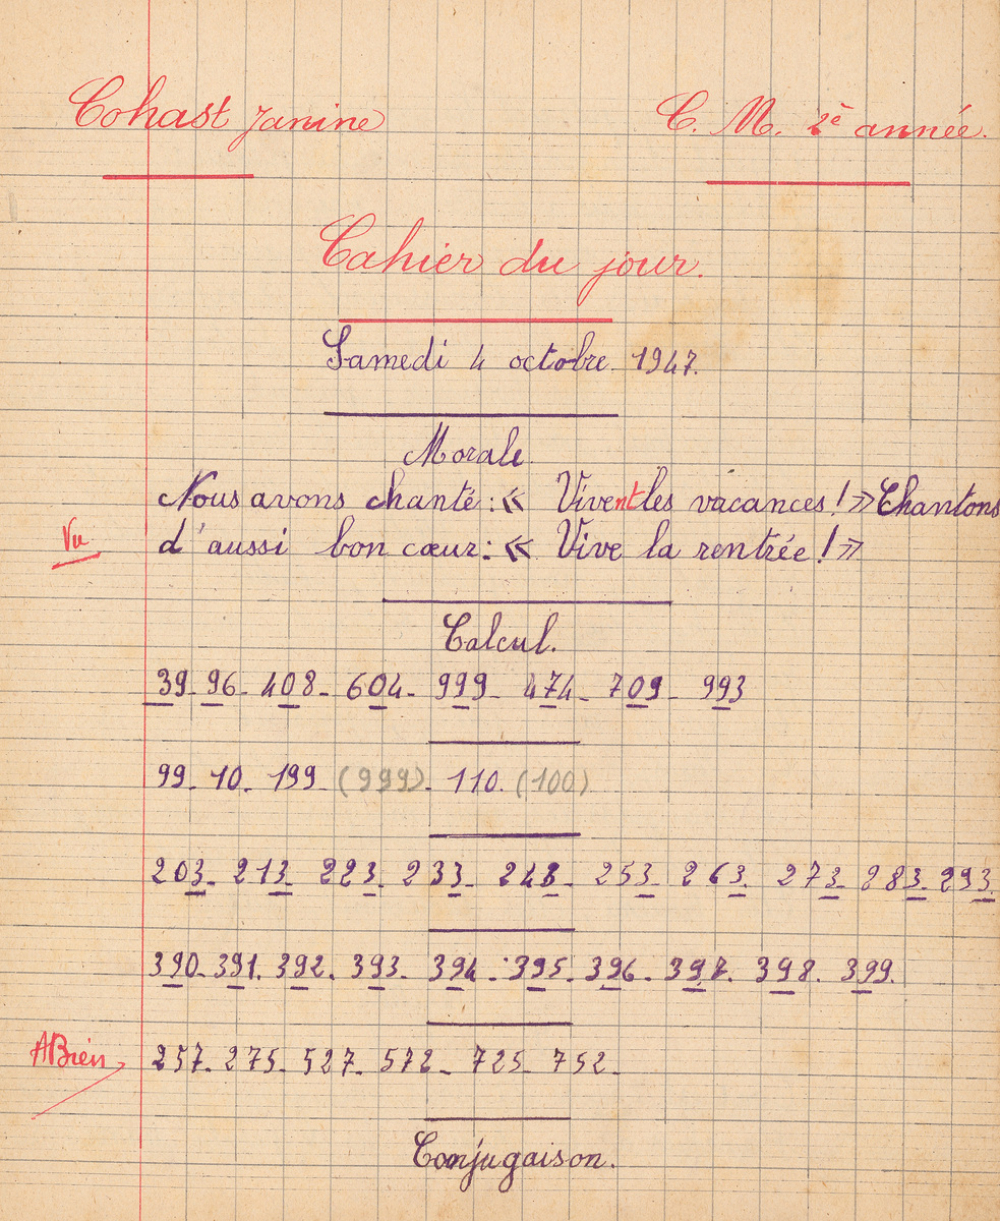 Cohast Janine
C. M. 2e année.
Cahier du jour.
Samedi 4 octobre 1947.
Morale.
Nous avons chanté : « Vivent les vacances ! » Chantons
Vu
d'aussi bon cœur : « Vive la rentrée ! »
Calcul.
39 - 96 - 408 - 604 - 999 - 474 - 709 - 993
99 - 10. 199 (999) - 110. (100)
203 - 213 223 - 233 - 243 - 253 - 263 - 273 - 283 - 293
390 - 391. 392. 393 - 394 - 395. 396. 397. 398. 399.
ABien
257 - 275 - 527 - 572 - 725 - 752 -
Conjugaison.